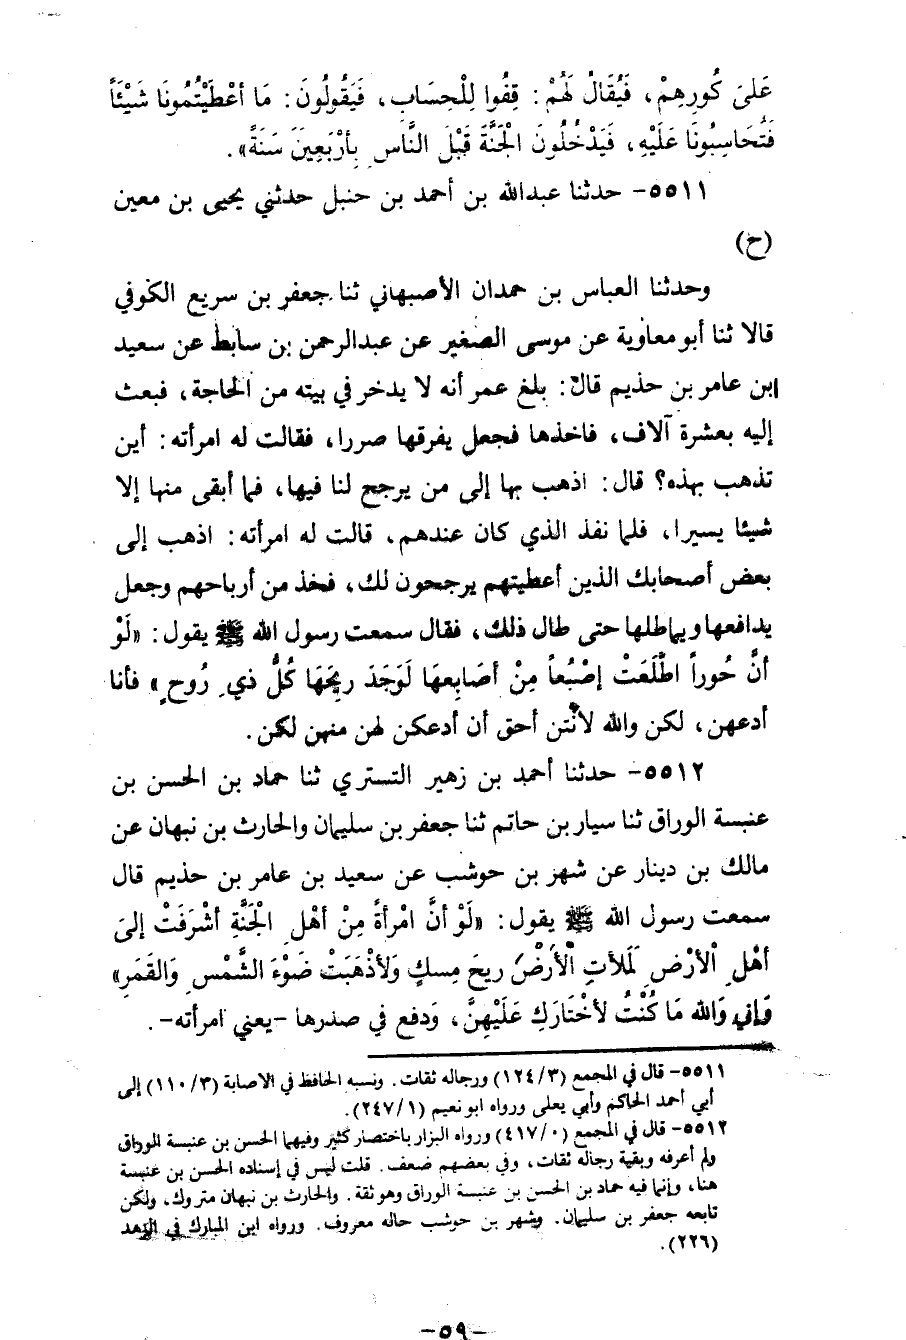 عَلىَ كُورِهِمْ، فَيُقَالُ لَهُمْ: قِفُوا لِلْحِسَابِ، فَيَقُولُونَ: مَا أعْطَيْتُمُونَا شَيْئَاً
فَتُحَاسِبُونَا عَلَيْهِ، فَيَدْخُلُونَ الْجَنَّةَ قَبْلَ النَّاسِ بِأرْبَعِينَ سَنَةً».
٥٥١١- حدثنا عبدالله بن أحمد بن حنبل حدثني يحيى بن معين
(ح)
وحدثنا العباس بن حمدان الأصبهاني ثنا جعفر بن سريع الكوفي
قالا ثنا أبو معاوية عن موسى الصغير عن عبدالرحمن بن سابط عن سعيد
ابن عامر بن حذيم قال: بلغ عمر أنه لا يدخر في بيته من الحاجة، فبعث
إليه بعشرة آلاف، فاخذها فجعل يفرقها صررا، فقالت له امرأته: أين
تذهب بهذه؟ قال: اذهب بها إلى من يرجح لنا فيها، فما أبقى منها إلا
شيئا يسيرا، فلما نفذ الذي كان عندهم، قالت له امرأته: اذهب إلى
بعض أصحابك الذين أعطيتهم يرجحون لك، فخذ من أرباحهم وجعل
يدافعها ويماطلها حتى طال ذلك، فقال سمعت رسول الله ﷺ يقول: «لَوْ
أنَّ حُوراً اطْلَعَتْ إصْبُعاً مِنْ أصَابِعهَا لَوَجَدَ رِيحَهَا كُلُّ ذيِ رُوحٍ» فأنا
أدعهن، لكن والله لأنتن أحق أن أدعكن لهن منهن لكن.
٥٥١٢- حدثنا أحمد بن زهير التستري ثنا حماد بن الحسن بن
عنبسة الوراق ثنا سيار بن حاتم ثنا جعفر بن سليمان والحارث بن نبهان عن
مالك بن دينار عن شهر بن حوشب عن سعيد بن عامر بن حذيم قال
سمعت رسول الله ﷺ يقول: «لَوْ أنَّ امْرأةً مِنْ أهْلِ الْجَنَّةِ أشْرَفَتْ إلىَ
أهْلِ الْأرْضِ لَمَلأتِ الْأرَضْ رِيحَ مِسكٍ وَلأذْهَبَتْ ضَوْءَ الشَّمْسِ وَالقَمَرِ»
وَإنيِ وَالله مَا كُنْتُ لأخْتَارَكِ عَلَيْهِنَّ، وَدفع في صدرها -يعني امرأته-.
٥٥١١- قال في المجمع (١٢٤/٣) ورجاله ثقات. ونسبه الحافظ في الاصابة (١١٠/٣) إلى
أبي أحمد الحاكم وأبي يعلى ورواه ابو نعيم (٢٤٧/١).
٥٥١٢- قال في المجمع (٤١٧/٠) ورواه البزار باختصار كثير وفيهما الحسن بن عنبسة الوراق
ولم أعرفه وبقية رجاله ثقات، وفي بعضهم ضعف. قلت ليس في إسناده الحسن بن عنبسة
هنا، وإنما فيه حماد بن الحسن بن عنبسة الوراق وهو ثقة. والحارث بن نبهان متروك، ولكن
تابعه جعفر بن سليمان. وشهر بن حوشب حاله معروف. ورواه ابن المبارك في الزهد
(٢٢٦).
-٥٩-